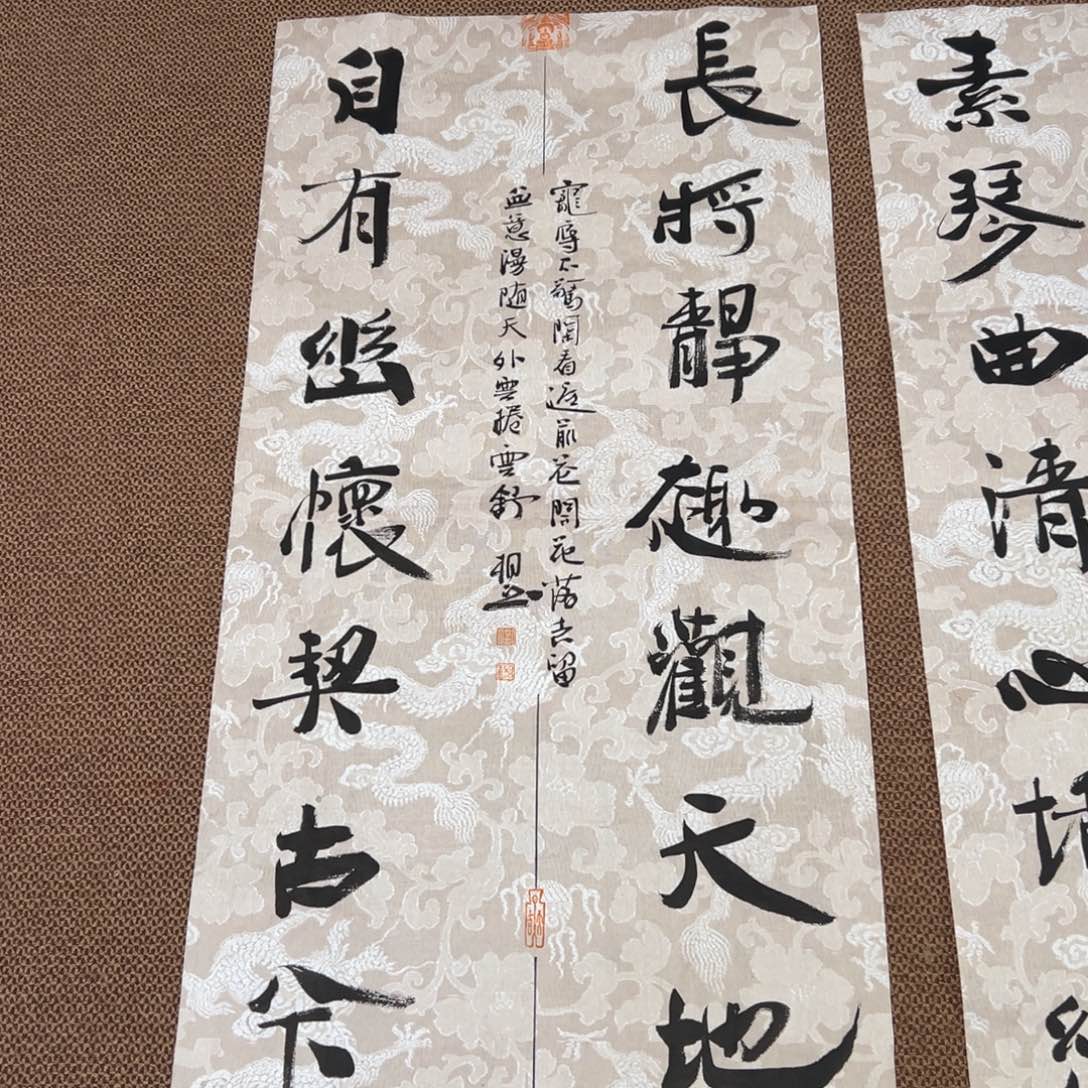 素琴曲清心
長將靜趣觀天地
寵辱不驚閑看庭前花開花落去留
無意漫随天外雲捲雲舒
自有幽懷契古今